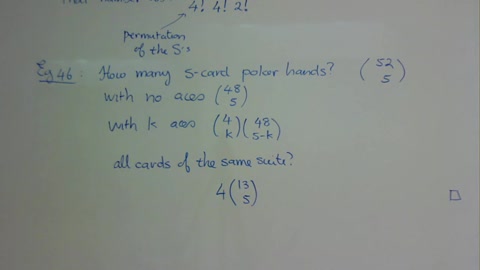 That number
4! 4! 2!
permutation
of the S's
Eg 46: How many 5-card poker hands? (52 5)
with no aces (48 5)
with k aces (4 k)(48 5-k)
all cards of the same suite?
4 (13 5)
□